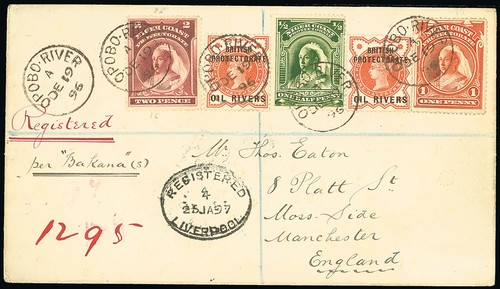 OPOBO·RIVER
A
DE 19
96
2 NIGER COAST 2
PROTECTORATE
TWO PENCE
BRITISH
PROTECTORATE
OIL RIVERS
1/2 NIGER COAST 1/2
ONE HALF PENNY
BRITISH
PROTECTORATE
OIL RIVERS
NIGER COAST
1 ONE PENNY 1
Registered
per "Bakana" (s)
1295
REGISTERED
4
JA 97
LIVERPOOL
Mr. Thos. Eaton
8 Platt St
Moss-Side
Manchester
England